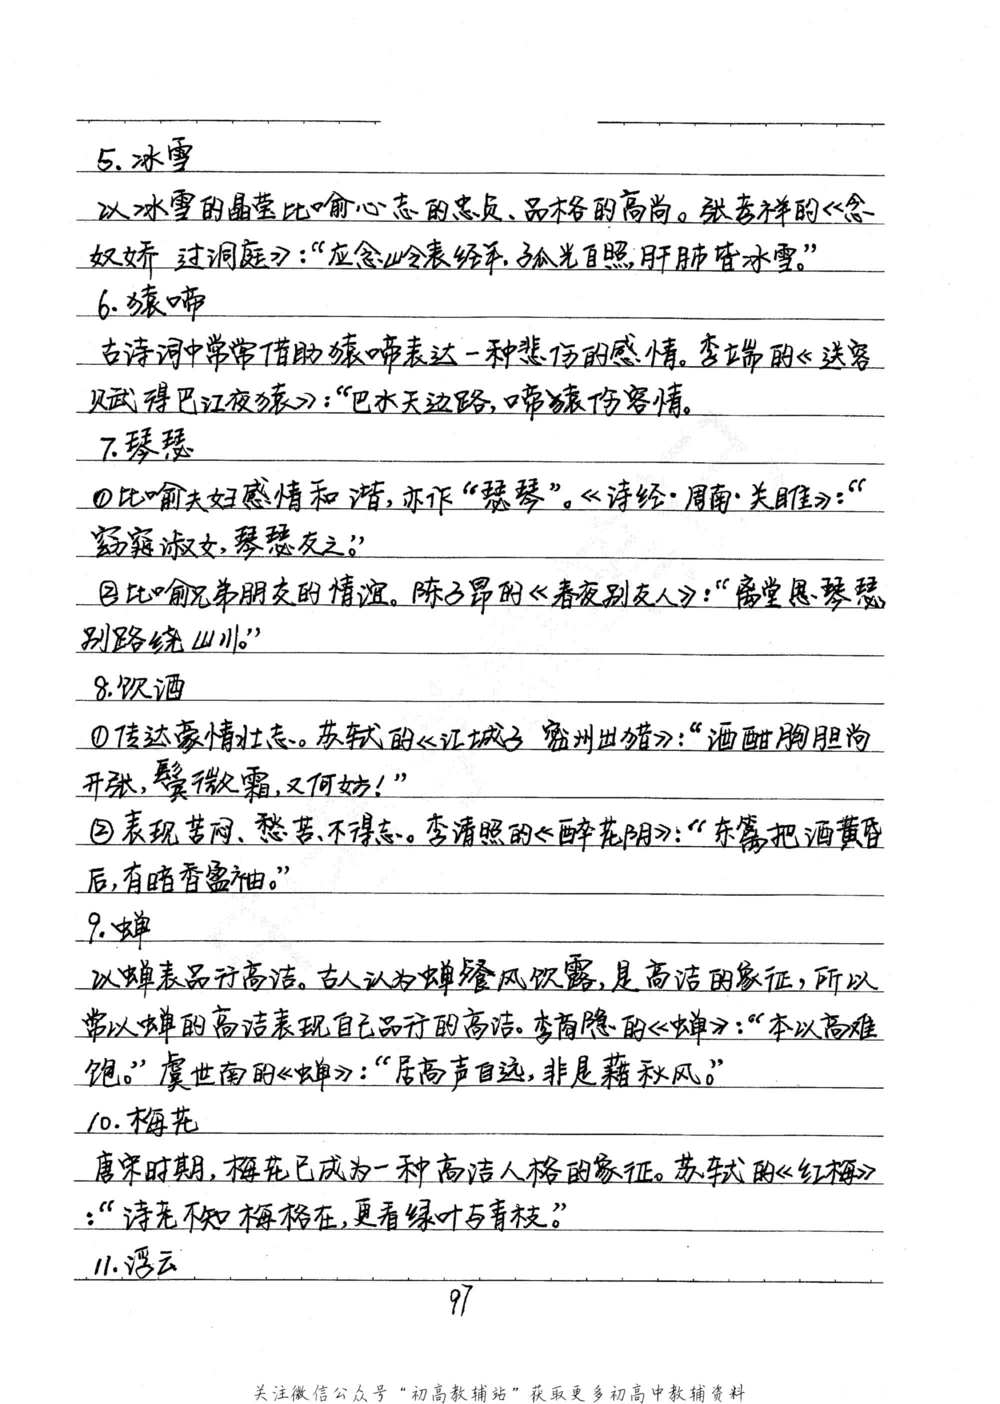 5.冰雪
以冰雪的晶莹比喻心志的忠贞、品格的高尚。张孝祥的《念
奴娇 过洞庭》:“应念岭表经年,孤光自照,肝肺皆冰雪。”
6.猿啼
古诗词中常常借助猿啼表达一种悲伤的感情。李端的《送客
赋得巴江夜猿》:“巴水天边路,啼猿伤客情。
7.琴瑟
①比喻夫妇感情和谐,亦作“瑟琴”。《诗经·周南·关雎》:“
窈窕淑女,琴瑟友之。”
②比喻兄弟朋友的情谊。陈子昂的《春夜别友人》:“离堂思琴瑟,
别路绕山川。”
8.饮酒
①传达豪情壮志。苏轼的《江城子 密州出猎》:“酒酣胸胆尚
开张,鬓微霜,又何妨!”
②表现苦闷、愁苦、不得志。李清照的《醉花阴》:“东篱把酒黄昏
后,有暗香盈袖。”
9.蝉
以蝉表品行高洁。古人认为蝉餐风饮露,是高洁的象征,所以
常以蝉的高洁表现自己品行的高洁。李商隐的《蝉》:“本以高难
饱。”虞世南的《蝉》:“居高声自远,非是藉秋风。”
10.梅花
唐宋时期,梅花已成为一种高洁人格的象征。苏轼的《红梅》
:“诗老不知梅格在,更看绿叶与青枝。”
11.浮云
97
关注微信公众号“初高教辅站”获取更多初高中教辅资料